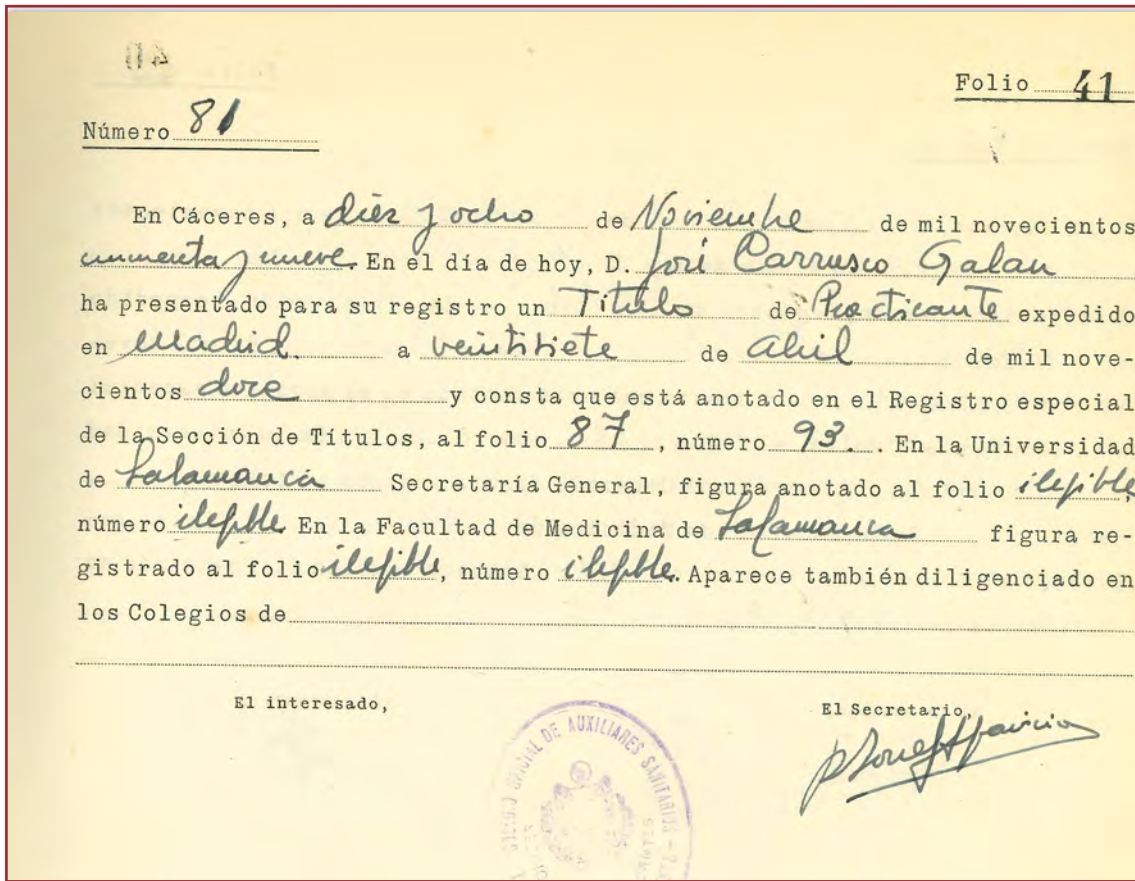 Folio 41
Número 81
En Cáceres, a diez y ocho de Noviembre de mil novecientos
cincuenta y nueve. En el día de hoy, D. José Carrasco Galan
ha presentado para su registro un Titulo de Practicante expedido
en Madrid. a veintisiete de Abril de mil nove-
cientos doce y consta que está anotado en el Registro especial
de la Sección de Títulos, al folio 87, número 93. . En la Universidad
de Salamanca Secretaría General, figura anotado al folio ilegible,
número ilegible. En la Facultad de Medicina de Salamanca figura re-
gistrado al folio ilegible, número ilegible. Aparece también diligenciado en
los Colegios de
El interesado,
El Secretario,
OFICIAL DE AUXILIARES SANITARIOS